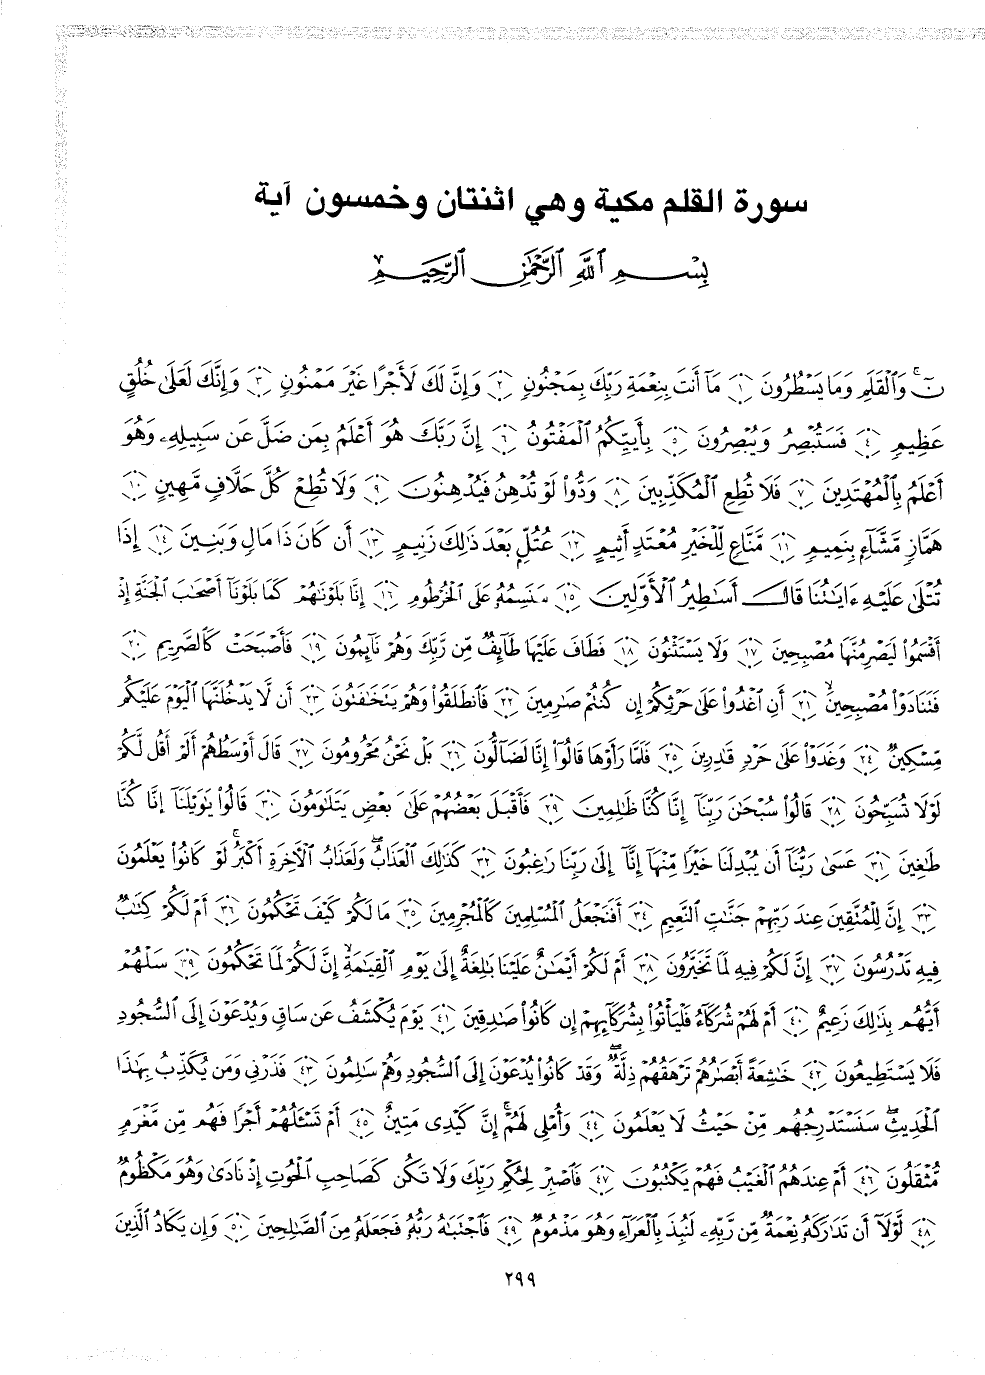 سورة القلم مكية وهي اثنتان وخمسون آية
بِسْمِ ٱللَّهِ ٱلرَّحْمَٰنِ ٱلرَّحِيمِ
نٓ ۚ وَٱلْقَلَمِ وَمَا يَسْطُرُونَ ﴿١﴾ مَآ أَنتَ بِنِعْمَةِ رَبِّكَ بِمَجْنُونٍ ﴿٢﴾ وَإِنَّ لَكَ لَأَجْرًا غَيْرَ مَمْنُونٍ ﴿٣﴾ وَإِنَّكَ لَعَلَىٰ خُلُقٍ
عَظِيمٍ ﴿٤﴾ فَسَتُبْصِرُ وَيُبْصِرُونَ ﴿٥﴾ بِأَييِّكُمُ ٱلْمَفْتُونُ ﴿٦﴾ إِنَّ رَبَّكَ هُوَ أَعْلَمُ بِمَن ضَلَّ عَن سَبِيلِهِۦ وَهُوَ
أَعْلَمُ بِٱلْمُهْتَدِينَ ﴿٧﴾ فَلَا تُطِعِ ٱلْمُكَذِّبِينَ ﴿٨﴾ وَدُّوا۟ لَوْ تُدْهِنُ فَيُدْهِنُونَ ﴿٩﴾ وَلَا تُطِعْ كُلَّ حَلَّافٍ مَّهِينٍ ﴿١٠﴾
هَمَّازٍ مَّشَّآءٍ بِنَمِيمٍ ﴿١١﴾ مَّنَّاعٍ لِّلْخَيْرِ مُعْتَدٍ أَثِيمٍ ﴿١٢﴾ عُتُلٍّ بَعْدَ ذَٰلِكَ زَنِيمٍ ﴿١٣﴾ أَن كَانَ ذَا مَالٍ وَبَنِينَ ﴿١٤﴾ إِذَا
تُتْلَىٰ عَلَيْهِ ءَايَٰتُنَا قَالَ أَسَٰطِيرُ ٱلْأَوَّلِينَ ﴿١٥﴾ سَنَسِمُهُۥ عَلَى ٱلْخُرْطُومِ ﴿١٦﴾ إِنَّا بَلَوْنَٰهُمْ كَمَا بَلَوْنَآ أَصْحَٰبَ ٱلْجَنَّةِ إِذْ
أَقْسَمُوا۟ لَيَصْرِمُنَّهَا مُصْبِحِينَ ﴿١٧﴾ وَلَا يَسْتَثْنُونَ ﴿١٨﴾ فَطَافَ عَلَيْهَا طَآئِفٌ مِّن رَّبِّكَ وَهُمْ نَآئِمُونَ ﴿١٩﴾ فَأَصْبَحَتْ كَٱلصَّرِيمِ ﴿٢٠﴾
فَتَنَادَوْا۟ مُصْبِحِينَ ﴿٢١﴾ أَنِ ٱغْدُوا۟ عَلَىٰ حَرْثِكُمْ إِن كُنتُمْ صَٰرِمِينَ ﴿٢٢﴾ فَٱنطَلَقُوا۟ وَهُمْ يَتَخَٰفَتُونَ ﴿٢٣﴾ أَن لَّا يَدْخُلَنَّهَا ٱلْيَوْمَ عَلَيْكُم
مِّسْكِينٌ ﴿٢٤﴾ وَغَدَوْا۟ عَلَىٰ حَرْدٍ قَٰدِرِينَ ﴿٢٥﴾ فَلَمَّا رَأَوْهَا قَالُوٓا۟ إِنَّا لَضَآلُّونَ ﴿٢٦﴾ بَلْ نَحْنُ مَحْرُومُونَ ﴿٢٧﴾ قَالَ أَوْسَطُهُمْ أَلَمْ أَقُل لَّكُمْ
لَوْلَا تُسَبِّحُونَ ﴿٢٨﴾ قَالُوا۟ سُبْحَٰنَ رَبِّنَآ إِنَّا كُنَّا ظَٰلِمِينَ ﴿٢٩﴾ فَأَقْبَلَ بَعْضُهُمْ عَلَىٰ بَعْضٍ يَتَلَٰوَمُونَ ﴿٣٠﴾ قَالُوا۟ يَٰوَيْلَنَآ إِنَّا كُنَّا
طَٰغِينَ ﴿٣١﴾ عَسَىٰ رَبُّنَآ أَن يُبْدِلَنَا خَيْرًا مِّنْهَآ إِنَّآ إِلَىٰ رَبِّنَا رَٰغِبُونَ ﴿٣٢﴾ كَذَٰلِكَ ٱلْعَذَابُ ۖ وَلَعَذَابُ ٱلْأَخِرَةِ أَكْبَرُ ۚ لَوْ كَانُوا۟ يَعْلَمُونَ
﴿٣٣﴾ إِنَّ لِلْمُتَّقِينَ عِندَ رَبِّهِمْ جَنَّٰتِ ٱلنَّعِيمِ ﴿٣٤﴾ أَفَنَجْعَلُ ٱلْمُسْلِمِينَ كَٱلْمُجْرِمِينَ ﴿٣٥﴾ مَا لَكُمْ كَيْفَ تَحْكُمُونَ ﴿٣٦﴾ أَمْ لَكُمْ كِتَٰبٌ
فِيهِ تَدْرُسُونَ ﴿٣٧﴾ إِنَّ لَكُمْ فِيهِ لَمَا تَخَيَّرُونَ ﴿٣٨﴾ أَمْ لَكُمْ أَيْمَٰنٌ عَلَيْنَا بَٰلِغَةٌ إِلَىٰ يَوْمِ ٱلْقِيَٰمَةِ ۙ إِنَّ لَكُمْ لَمَا تَحْكُمُونَ ﴿٣٩﴾ سَلْهُمْ
أَيُّهُم بِذَٰلِكَ زَعِيمٌ ﴿٤٠﴾ أَمْ لَهُمْ شُرَكَآءُ فَلْيَأْتُوا۟ بِشُرَكَآئِهِمْ إِن كَانُوا۟ صَٰدِقِينَ ﴿٤١﴾ يَوْمَ يُكْشَفُ عَن سَاقٍ وَيُدْعَوْنَ إِلَى ٱلسُّجُودِ
فَلَا يَسْتَطِيعُونَ ﴿٤٢﴾ خَٰشِعَةً أَبْصَٰرُهُمْ تَرْهَقُهُمْ ذِلَّةٌ ۖ وَقَدْ كَانُوا۟ يُدْعَوْنَ إِلَى ٱلسُّجُودِ وَهُمْ سَٰلِمُونَ ﴿٤٣﴾ فَذَرْنِى وَمَن يُكَذِّبُ بِهَٰذَا
ٱلْحَدِيثِ ۖ سَنَسْتَدْرِجُهُم مِّنْ حَيْثُ لَا يَعْلَمُونَ ﴿٤٤﴾ وَأُمْلِى لَهُمْ ۚ إِنَّ كَيْدِى مَتِينٌ ﴿٤٥﴾ أَمْ تَسْـَٔلُهُمْ أَجْرًا فَهُم مِّن مَّغْرَمٍ
مُّثْقَلُونَ ﴿٤٦﴾ أَمْ عِندَهُمُ ٱلْغَيْبُ فَهُمْ يَكْتُبُونَ ﴿٤٧﴾ فَٱصْبِرْ لِحُكْمِ رَبِّكَ وَلَا تَكُن كَصَاحِبِ ٱلْحُوتِ إِذْ نَادَىٰ وَهُوَ مَكْظُومٌ
﴿٤٨﴾ لَّوْلَآ أَن تَدَٰرَكَهُۥ نِعْمَةٌ مِّن رَّبِّهِۦ لَنُبِذَ بِٱلْعَرَآءِ وَهُوَ مَذْمُومٌ ﴿٤٩﴾ فَٱجْتَبَٰهُ رَبُّهُۥ فَجَعَلَهُۥ مِنَ ٱلصَّٰلِحِينَ ﴿٥٠﴾ وَإِن يَكَادُ ٱلَّذِينَ
٢٩٩